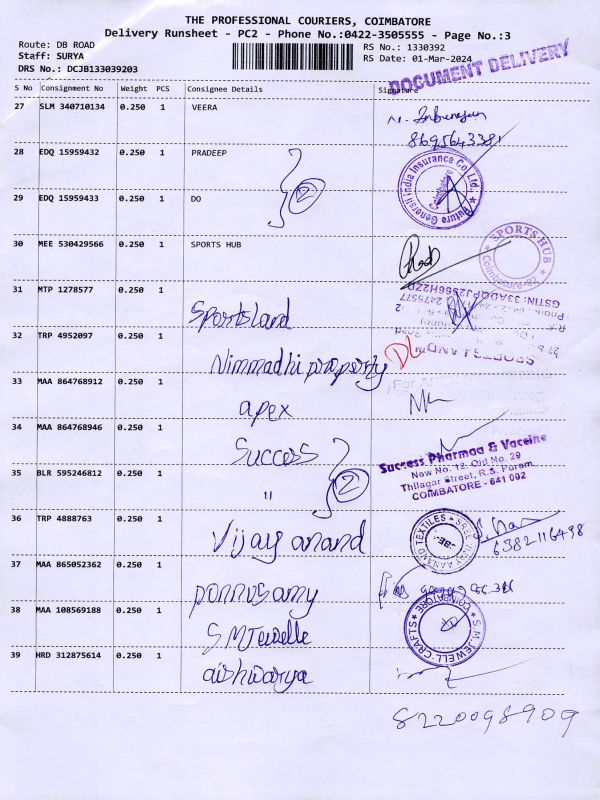 THE PROFESSIONAL COURIERS, COIMBATORE
Delivery Runsheet - PC2 - Phone No.:0422-3505555 - Page No.:3
Route: DB ROAD
Staff: SURYA
DRS No.: DCJB133039203
RS No.: 1330392
RS Date: 01-Mar-2024
DOCUMENT DELIVERY
S No Consignment No Weight PCS Consignee Details Signature
27 SLM 340710134 0.250 1 VEERA
8695643381
28 EDQ 15959432 0.250 1 PRADEEP
2
Future Generali India Insurance Co. Ltd.
29 EDQ 15959433 0.250 1 DO
30 MEE 530429566 0.250 1 SPORTS HUB
SPORTS HUB
Coimbatore-02
31 MTP 1278577 0.250 1
Sportsland
SPORTS LAND
32 TRP 4952097 0.250 1
Nimmadhi property
33 MAA 864768912 0.250 1
apex
34 MAA 864768946 0.250 1
Success
Success Pharmaa & Vaccine
New No. 12, Old No. 29
Thilagar Street, R.S. Puram,
COIMBATORE - 641 002
35 BLR 595246812 0.250 1
"
2
36 TRP 4888763 0.250 1
Vijay anand
6382116498
37 MAA 865052362 0.250 1
ponnusamy
38 MAA 108569188 0.250 1
S.M Jewelle
S.M. JEWELL CRAFTS
COIMBATORE
39 HRD 312875614 0.250 1
aishwarya
8220098909